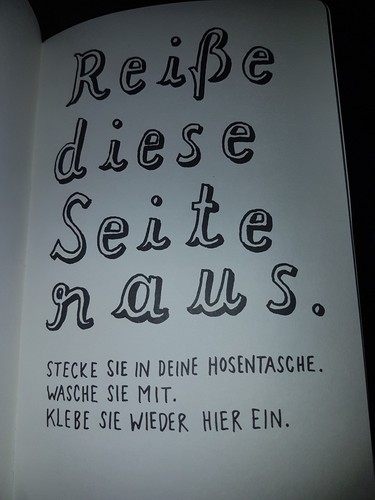 Reiße
diese
Seite
raus.
STECKE SIE IN DEINE HOSENTASCHE.
WASCHE SIE MIT.
KLEBE SIE WIEDER HIER EIN.